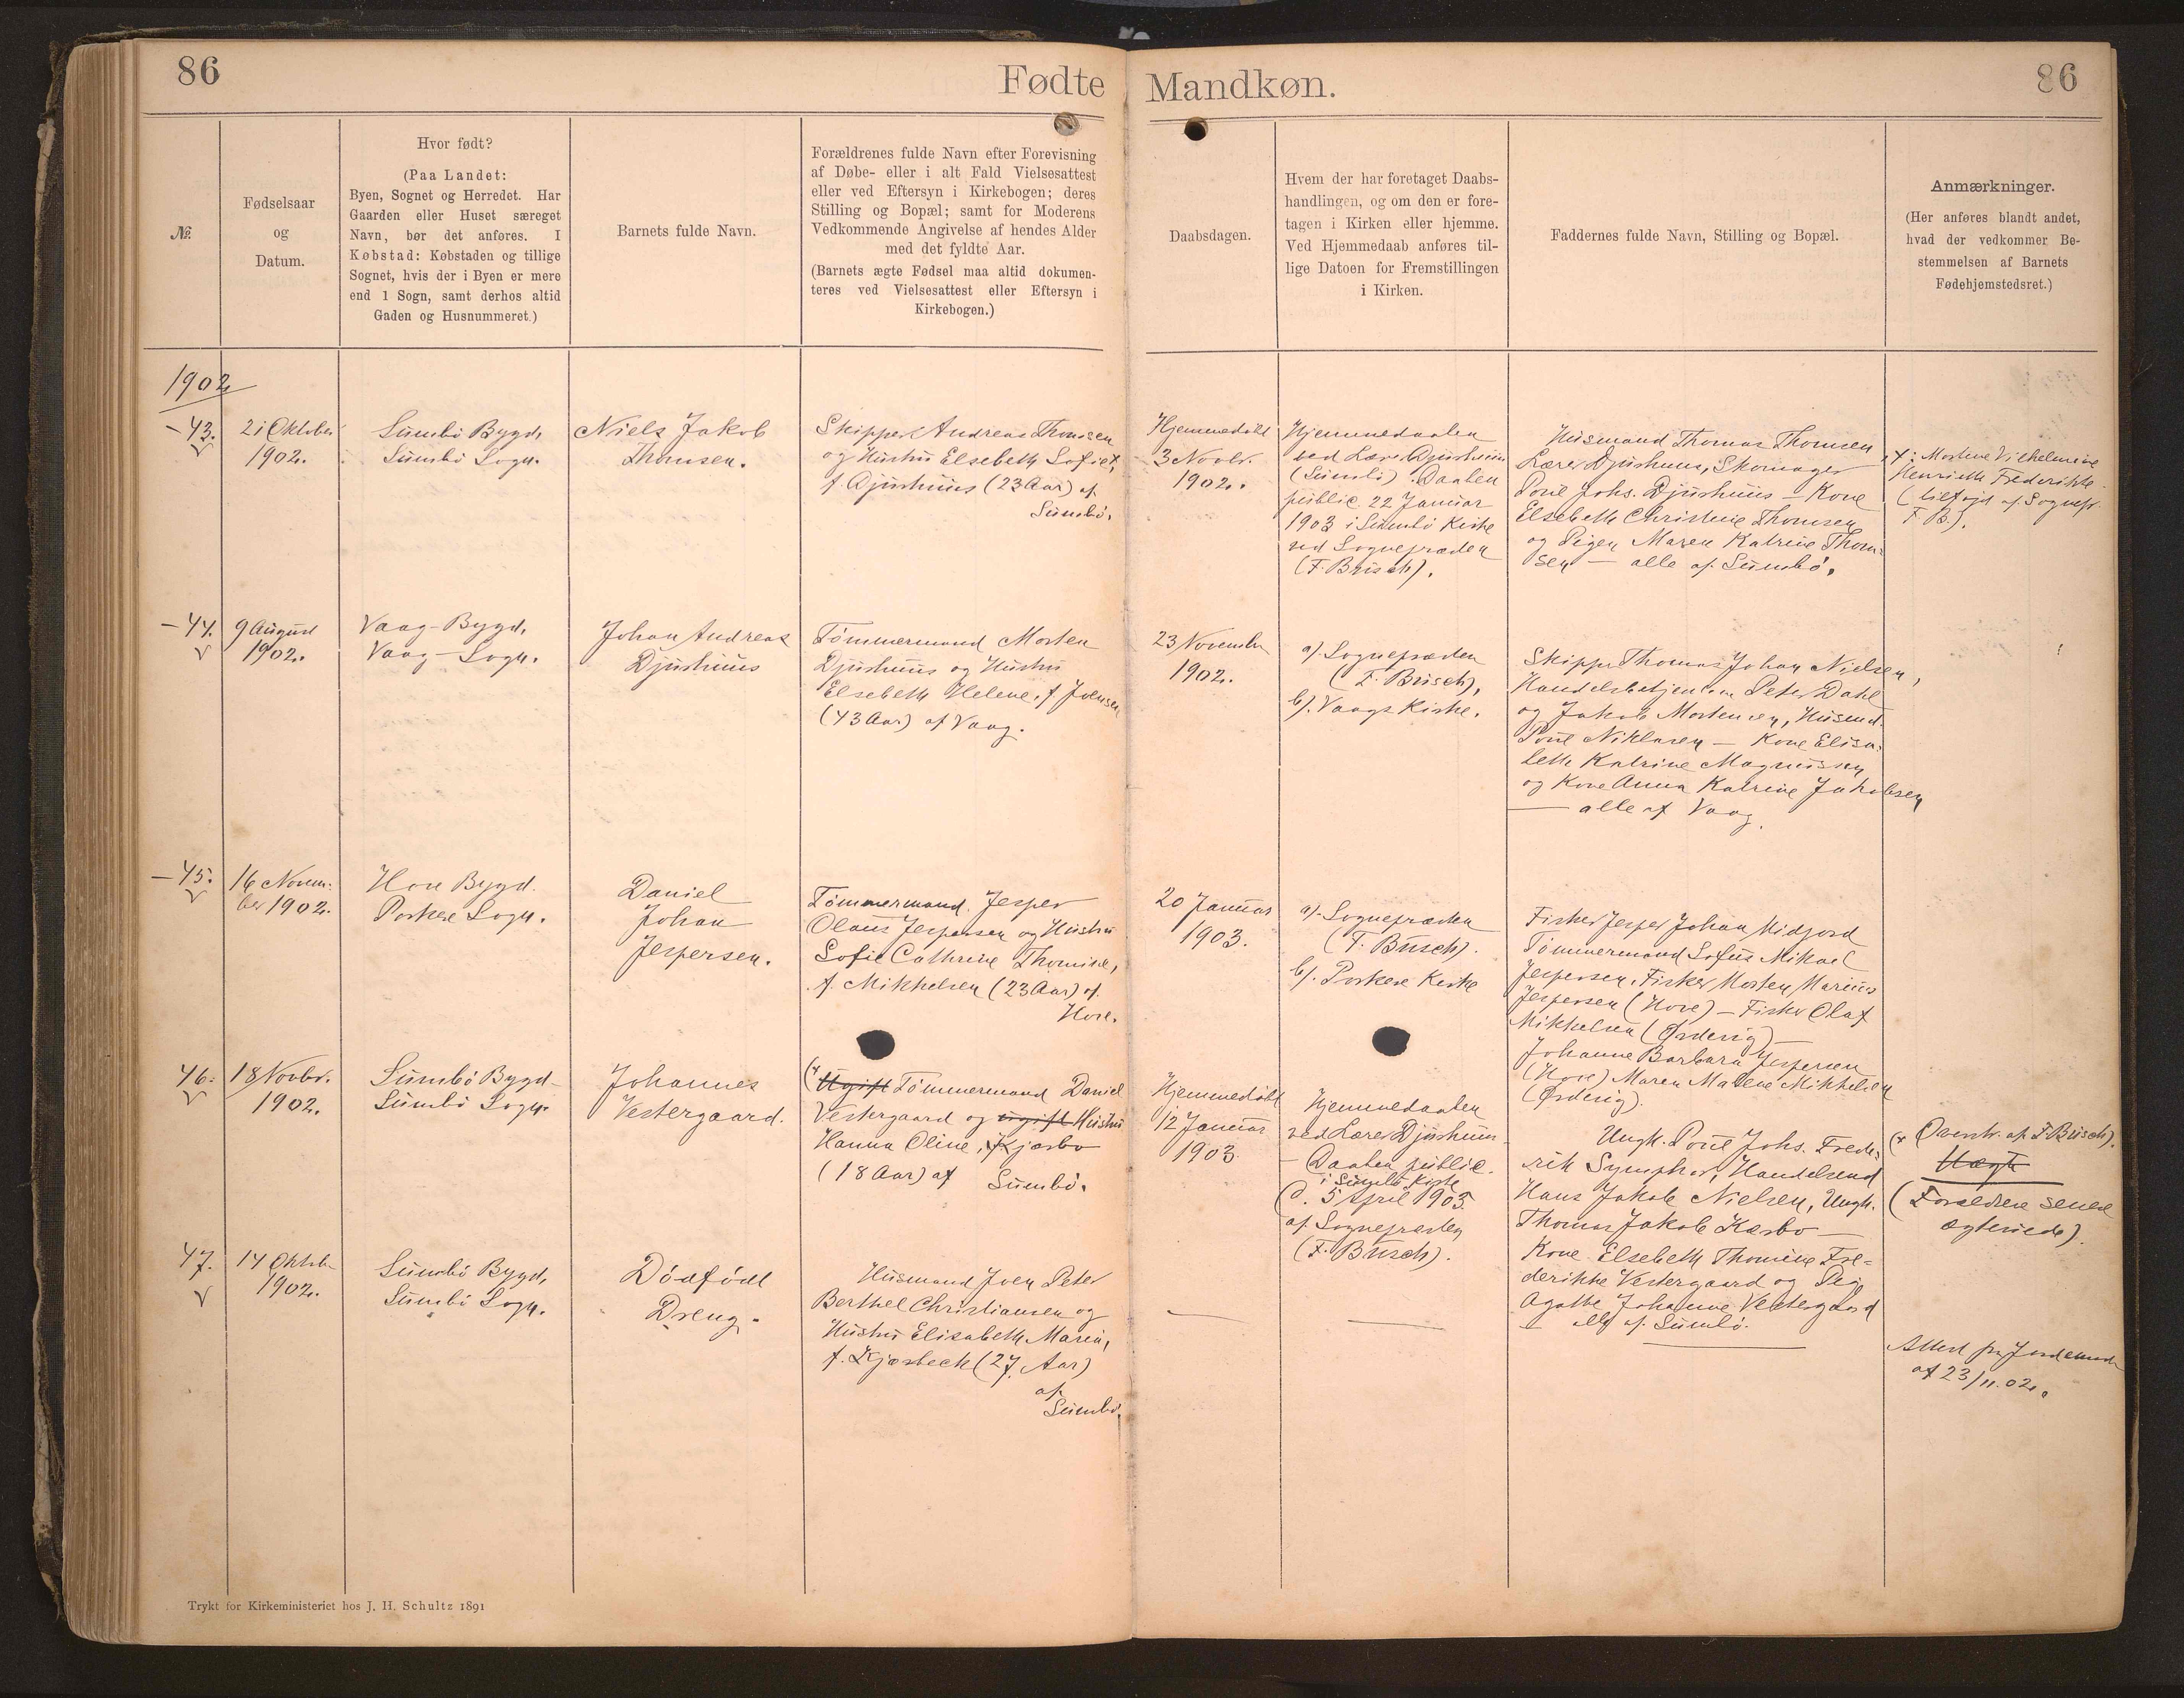 86
Fødte
Mandkøn.
86
№
Fødselsaar
og
Datum.
Hvor født?
(Paa Landet:
Byen, Sognet og Herredet. Har
Gaarden eller Huset særeget
Navn, bør det anføres. I
Købstad: Købstaden og tillige
Sognet, hvis der i Byen er mere
end 1 Sogn, samt derhos altid
Gaden og Husnummeret.)
Barnets fulde Navn.
Forældrenes fulde Navn efter Forevisning
af Døbe- eller i alt Fald Vielsesattest
eller ved Eftersyn i Kirkebogen; deres
Stilling og Bopæl; samt for Moderens
Vedkommende Angivelse af hendes Alder
med det fyldte Aar.
(Barnets ægte Fødsel maa altid dokumen-
teres ved Vielsesattest eller Eftersyn i
Kirkebogen.)
Daabsdagen.
Hvem der har foretaget Daabs-
handlingen, og om den er fore-
tagen i Kirken eller hjemme.
Ved Hjemmedaab anføres til-
lige Datoen for Fremstillingen
i Kirken.
Faddernes fulde Navn, Stilling og Bopæl.
Anmærkninger.
(Her anføres blandt andet,
hvad der vedkommer Be-
stemmelsen af Barnets
Fødehjemstedsret.)
1902
43.
21 Oktober
1902.
Sumbö Bygd,
Sumbö Sogn.
Niels Jakob
Thomsen.
Skipper Andreas Thomsen
og Hustru Elsebeth Sofie x,
f. Djurhuus (23 Aar) af
Sumbö.
Hjemmedöbt
3 Novbr.
1902.
Hjemmedaaben
ved Lærer Djurhuus
(Sumbö). Daaben
public. 22 Januar
1903 i Sumbö Kirke
ved Sognepræsten
(F. Büsch).
Husmand Thomas Thomsen,
Lærer Djurhuus, Skomager
Poul Johs. Djurhuus — Kone
Elsebeth Christine Thomsen
og Pigen Maren Katrine Thom=
sen — alle af Sumbö.
x: Mortine Vilhelmine
Henriette Frederikke
(tilföjet af Sognepr.
F. B.).
44.
9 August
1902.
Vaag-Bygd,
Vaag-Sogn.
Johan Andreas
Djurhuus
Tömmermand Morten
Djurhuus og Hustru
Elsebeth Helene, f. Joensen
(43 Aar) af Vaag.
23 November
1902.
a). Sognepræsten
(F. Büsch),
b). Vaags Kirke.
Skipper Thomas Johan Nielsen,
Handelsbetjentene Peter Dahl
og Jakob Mortensen, Husmd.
Poul Niklasen — Kone Elisa=
beth Katrine Magnussen
og Kone Anna Katrine Jakobsen
— alle af Vaag.
45.
16 Novem=
ber 1902.
Hove Bygd.
Porkere Sogn.
Daniel
Johan
Jespersen.
Tömmermand Jesper
Olaus Jespersen og Hustru
Sofie Cathrine Thomine,
f. Mikkelsen (23 Aar) af
Hove.
20 Januar
1903.
a). Sognepræsten
(F. Büsch).
b). Porkere Kirke
Fisker Jesper Johan Midjord
Tömmermand Sofus Mikael
Jespersen, Fisker Morten Marius
Jespersen (Hove) — Fisker Olaf
Mikkelsen (Ørderig) —
Johanne Barbara Jespersen
(Hove) Maren Malene Mikkelsen
(Ørderig).
46.
18 Novbr.
1902.
Sumbö Bygd
Sumbö Sogn.
Johannes
Vestergaard.
(x Ugift Tömmermand Daniel
Vestergaard og ugift Hustru
Hanna Oline, Kjærbo
(18 Aar) af Sumbö.
Hjemmedöbt
12 Januar
1903.
Hjemmedaaben
ved Lærer Djurhuus
— Daaben public.
i Sumbö Kirke
d. 5 April 1903.
af Sognepræsten
(F. Büsch).
Ungk. Poul Johs. Frede=
rik Symphor, Handelsmd
Hans Jakob Nielsen, Ungk.
Thomas Jakob Kærbo —
Kone Elsebeth Thomine Fre=
derikke Vestergaard og Pige
Agathe Johanne Vestergaard
— alle af Sumbö.
(x Overstr. af F. Büsch).
Uægte
(Forældrene senere
ægteviede).
47.
14 Oktbr.
1902.
Sumbö Bygd,
Sumbö Sogn.
Dödfödt
Dreng.
Husmand Joen Peter
Berthel Christiansen og
Hustru Elisabeth Maria,
f. Kjærbech (27 Aar)
af
Sumbö.
Attest fra Jordemoder
af 23/11.02.
Trykt for Kirkeministeriet hos J. H. Schultz 1891